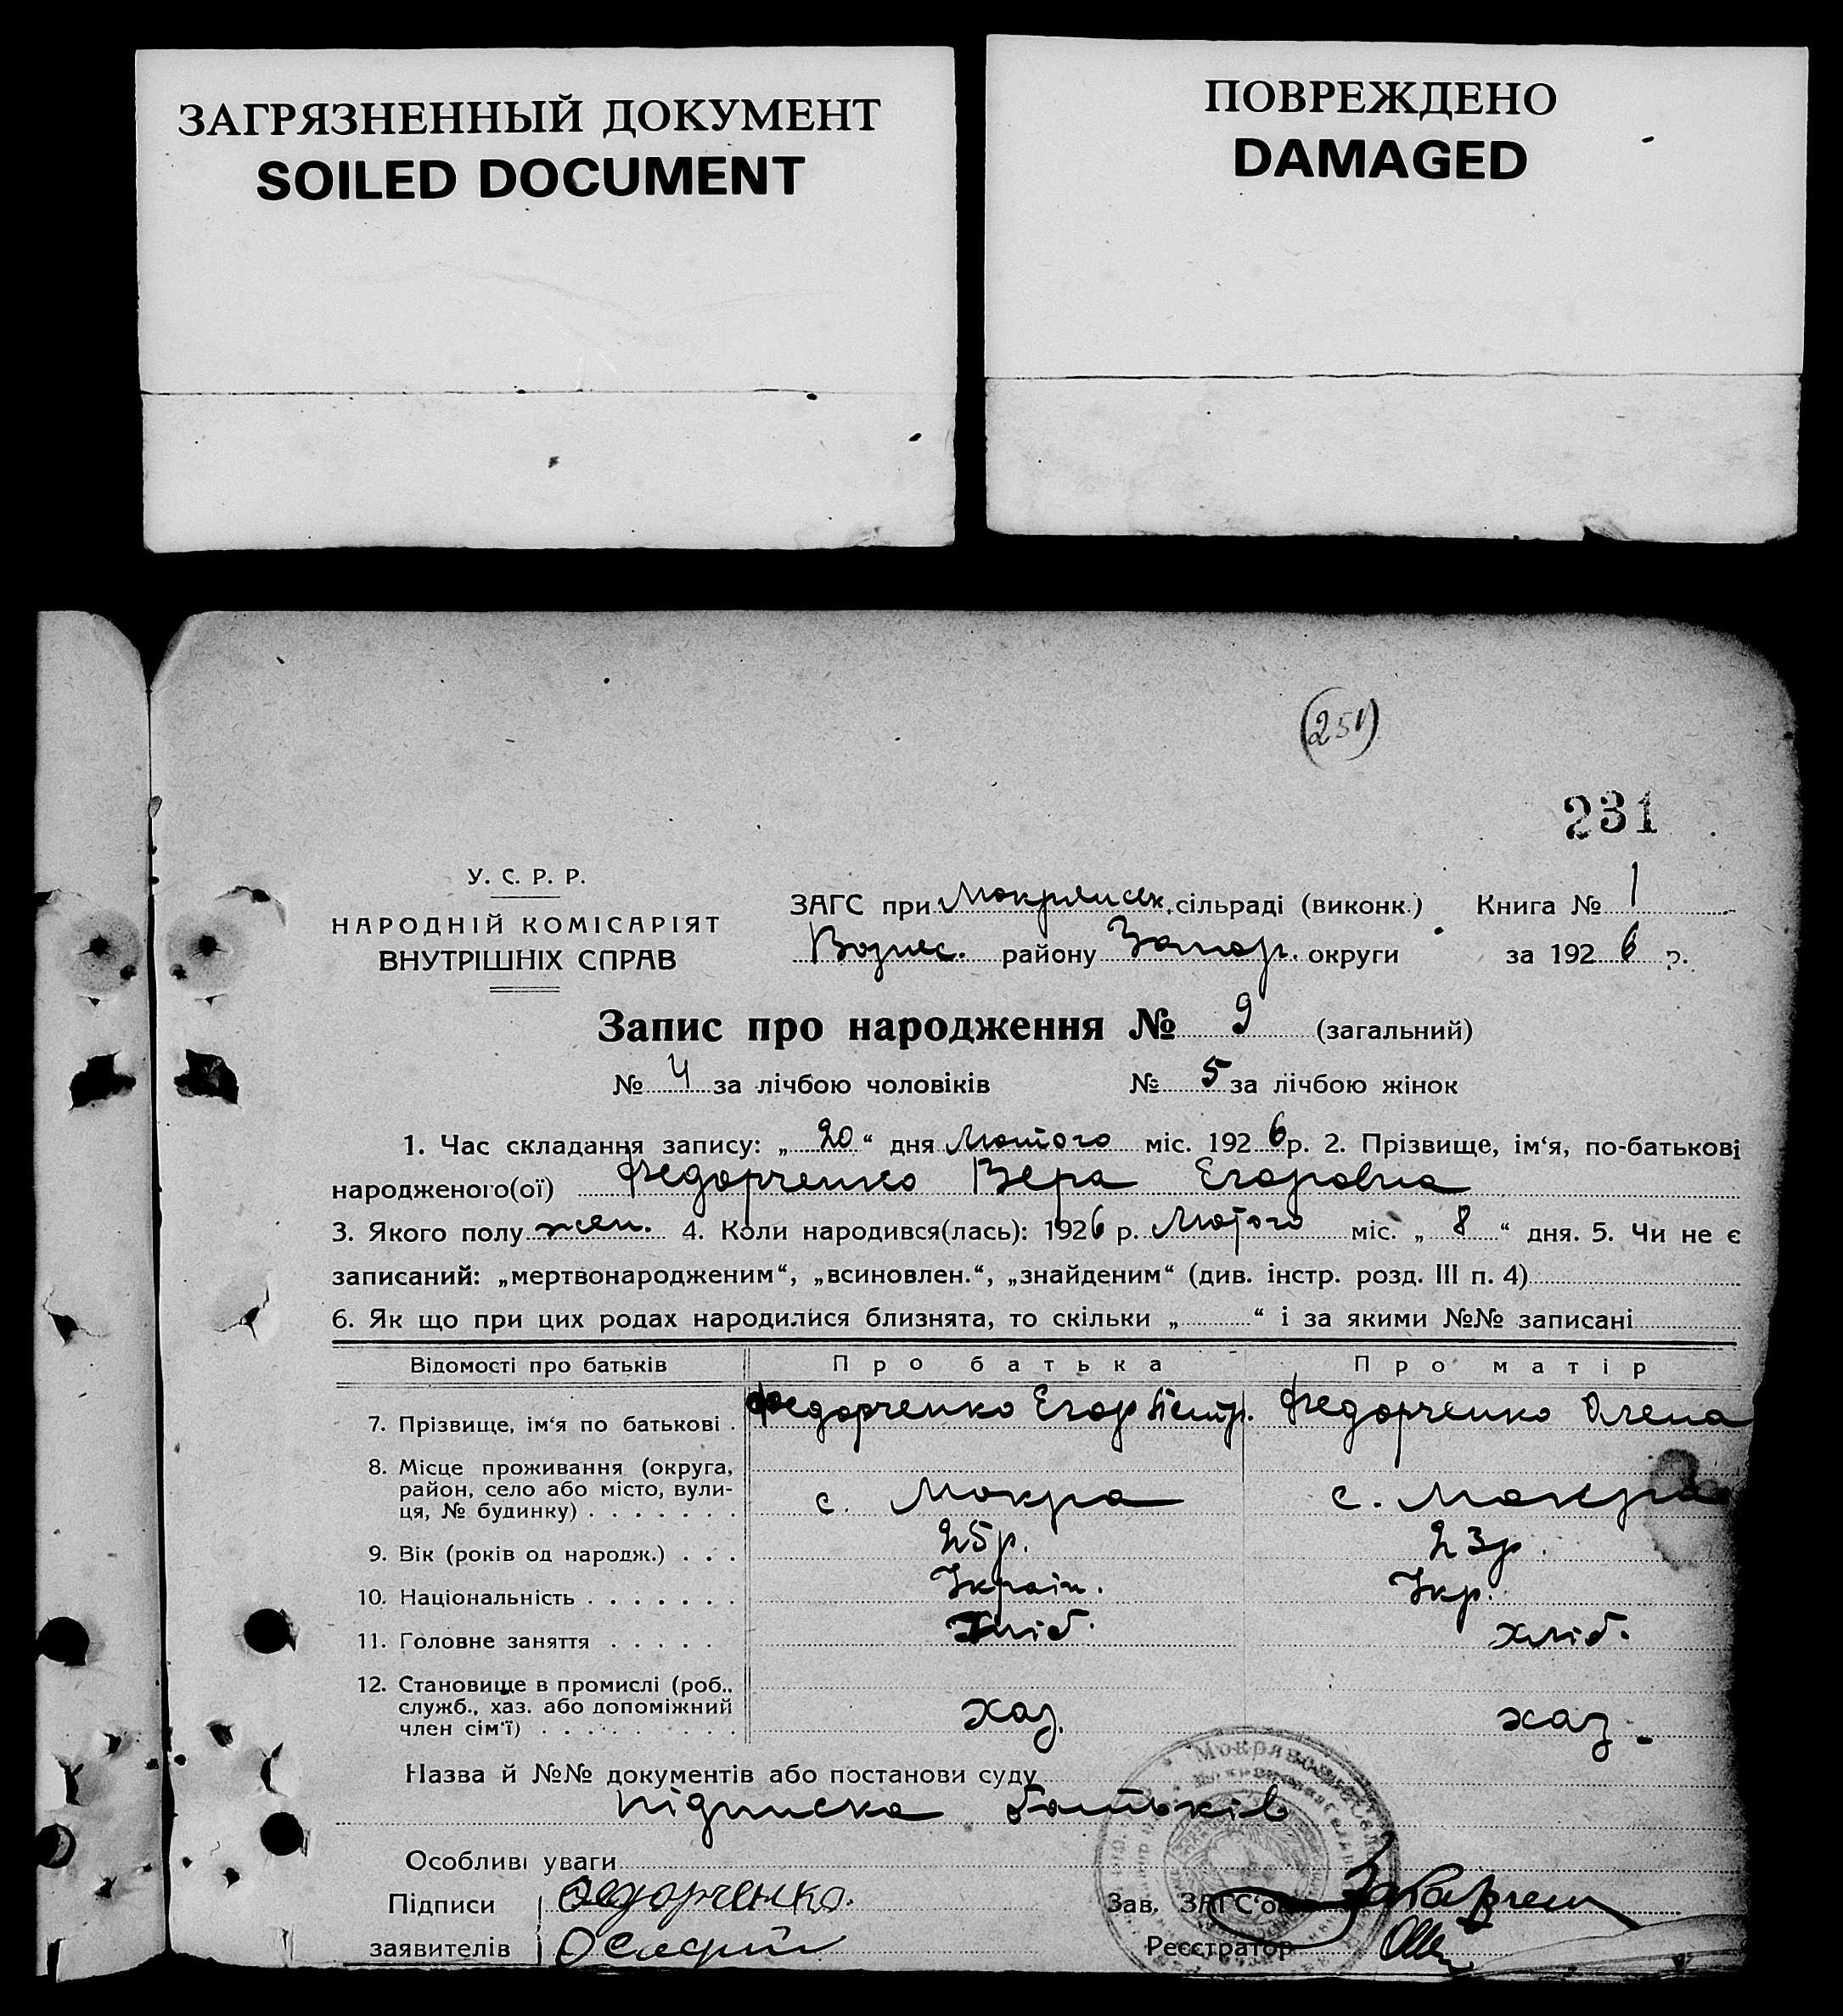 ЗАГРЯЗНЕННЫЙ ДОКУМЕНТ
SOILED DOCUMENT
ПОВРЕЖДЕНО
DAMAGED
(251)
231
У. С. Р. Р.
НАРОДНІЙ КОМІСАРІЯТ
ВНУТРІШНІХ СПРАВ
ЗАГС при Мокрянськ. сільраді (виконк.) Книга № 1
Вознес. району Запор. округи за 1926 р.
Запис про народження № 9 (загальний)
№ 4 за лічбою чоловіків № 5 за лічбою жінок
1. Час складання запису: „20“ дня Лютого міс. 1926 р. 2. Прізвище, ім‘я, по-батькові
народженого(ої) Федорченко Вера Егоровна
3. Якого полу жен. 4. Коли народився(лась): 1926 р. Лютого міс. „8“ дня. 5. Чи не є
записаний: „мертвонародженим“, „всиновлен.“, „знайденим“ (див. інстр. розд. III п. 4)
6. Як що при цих родах народилися близнята, то скільки „ “ і за якими №№ записані
Відомості про батьків Про батька Про матір
7. Прізвище, ім‘я по батькові . Федорченко Егор Петр. Федорченко Олена
8. Місце проживання (округа,
район, село або місто, вули-
ця, № будинку) . . . . . . . с. Мокра с. Мокра
9. Вік (років од народж.) . . . 25 р. 23 р.
10. Національність . . . . . . . Україн. Укр.
11. Головне заняття . . . . . Хліб. хліб.
12. Становище в промислі (роб.,
служб., хаз. або допоміжний
член сім‘ї) . . . . . . . . . хаз. хаз.
Назва й №№ документів або постанови суду
підписка батьків
Особливі уваги
Підписи Федорченко. Зав. ЗАГС‘ом
заявителів Реєстратор